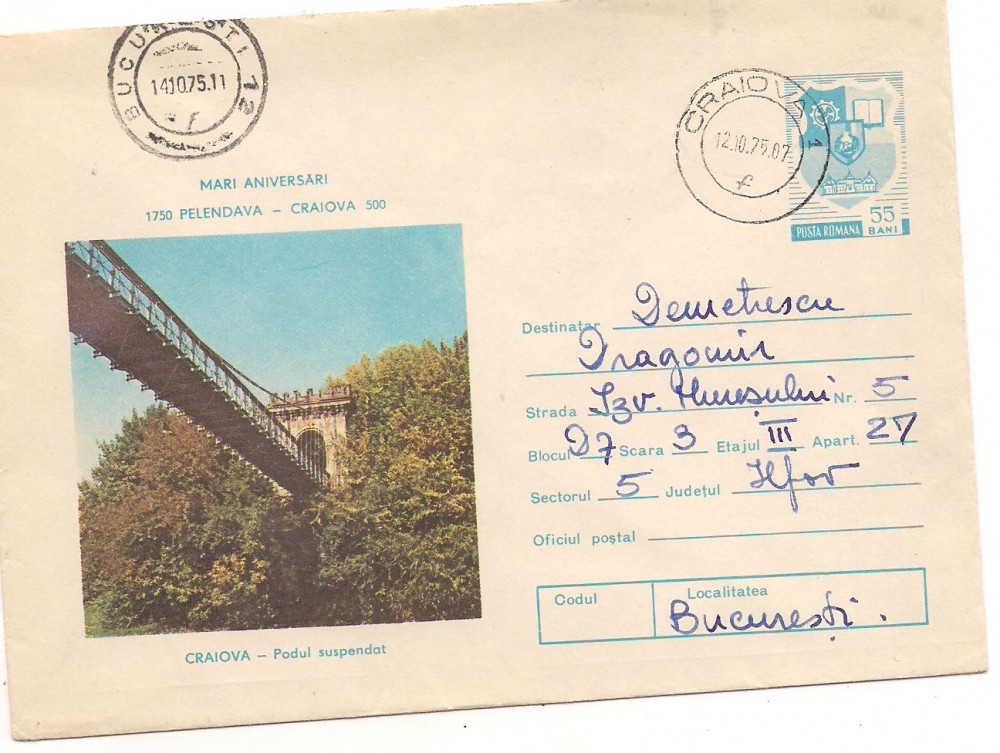 BUCUREȘTI 12
14.10.75.11
f
CRAIOVA 1
12.10.75.07
f
POSTA ROMANA 55 BANI
MARI ANIVERSĂRI
1750 PELENDAVA – CRAIOVA 500
CRAIOVA – Podul suspendat
Destinatar Demetrescu
Dragomir
Strada Izv. Mureșului Nr. 5
Blocul D7 Scara 3 Etajul III Apart. 27
Sectorul 5 Județul Ilfov
Oficiul poștal
Codul
Localitatea
București.